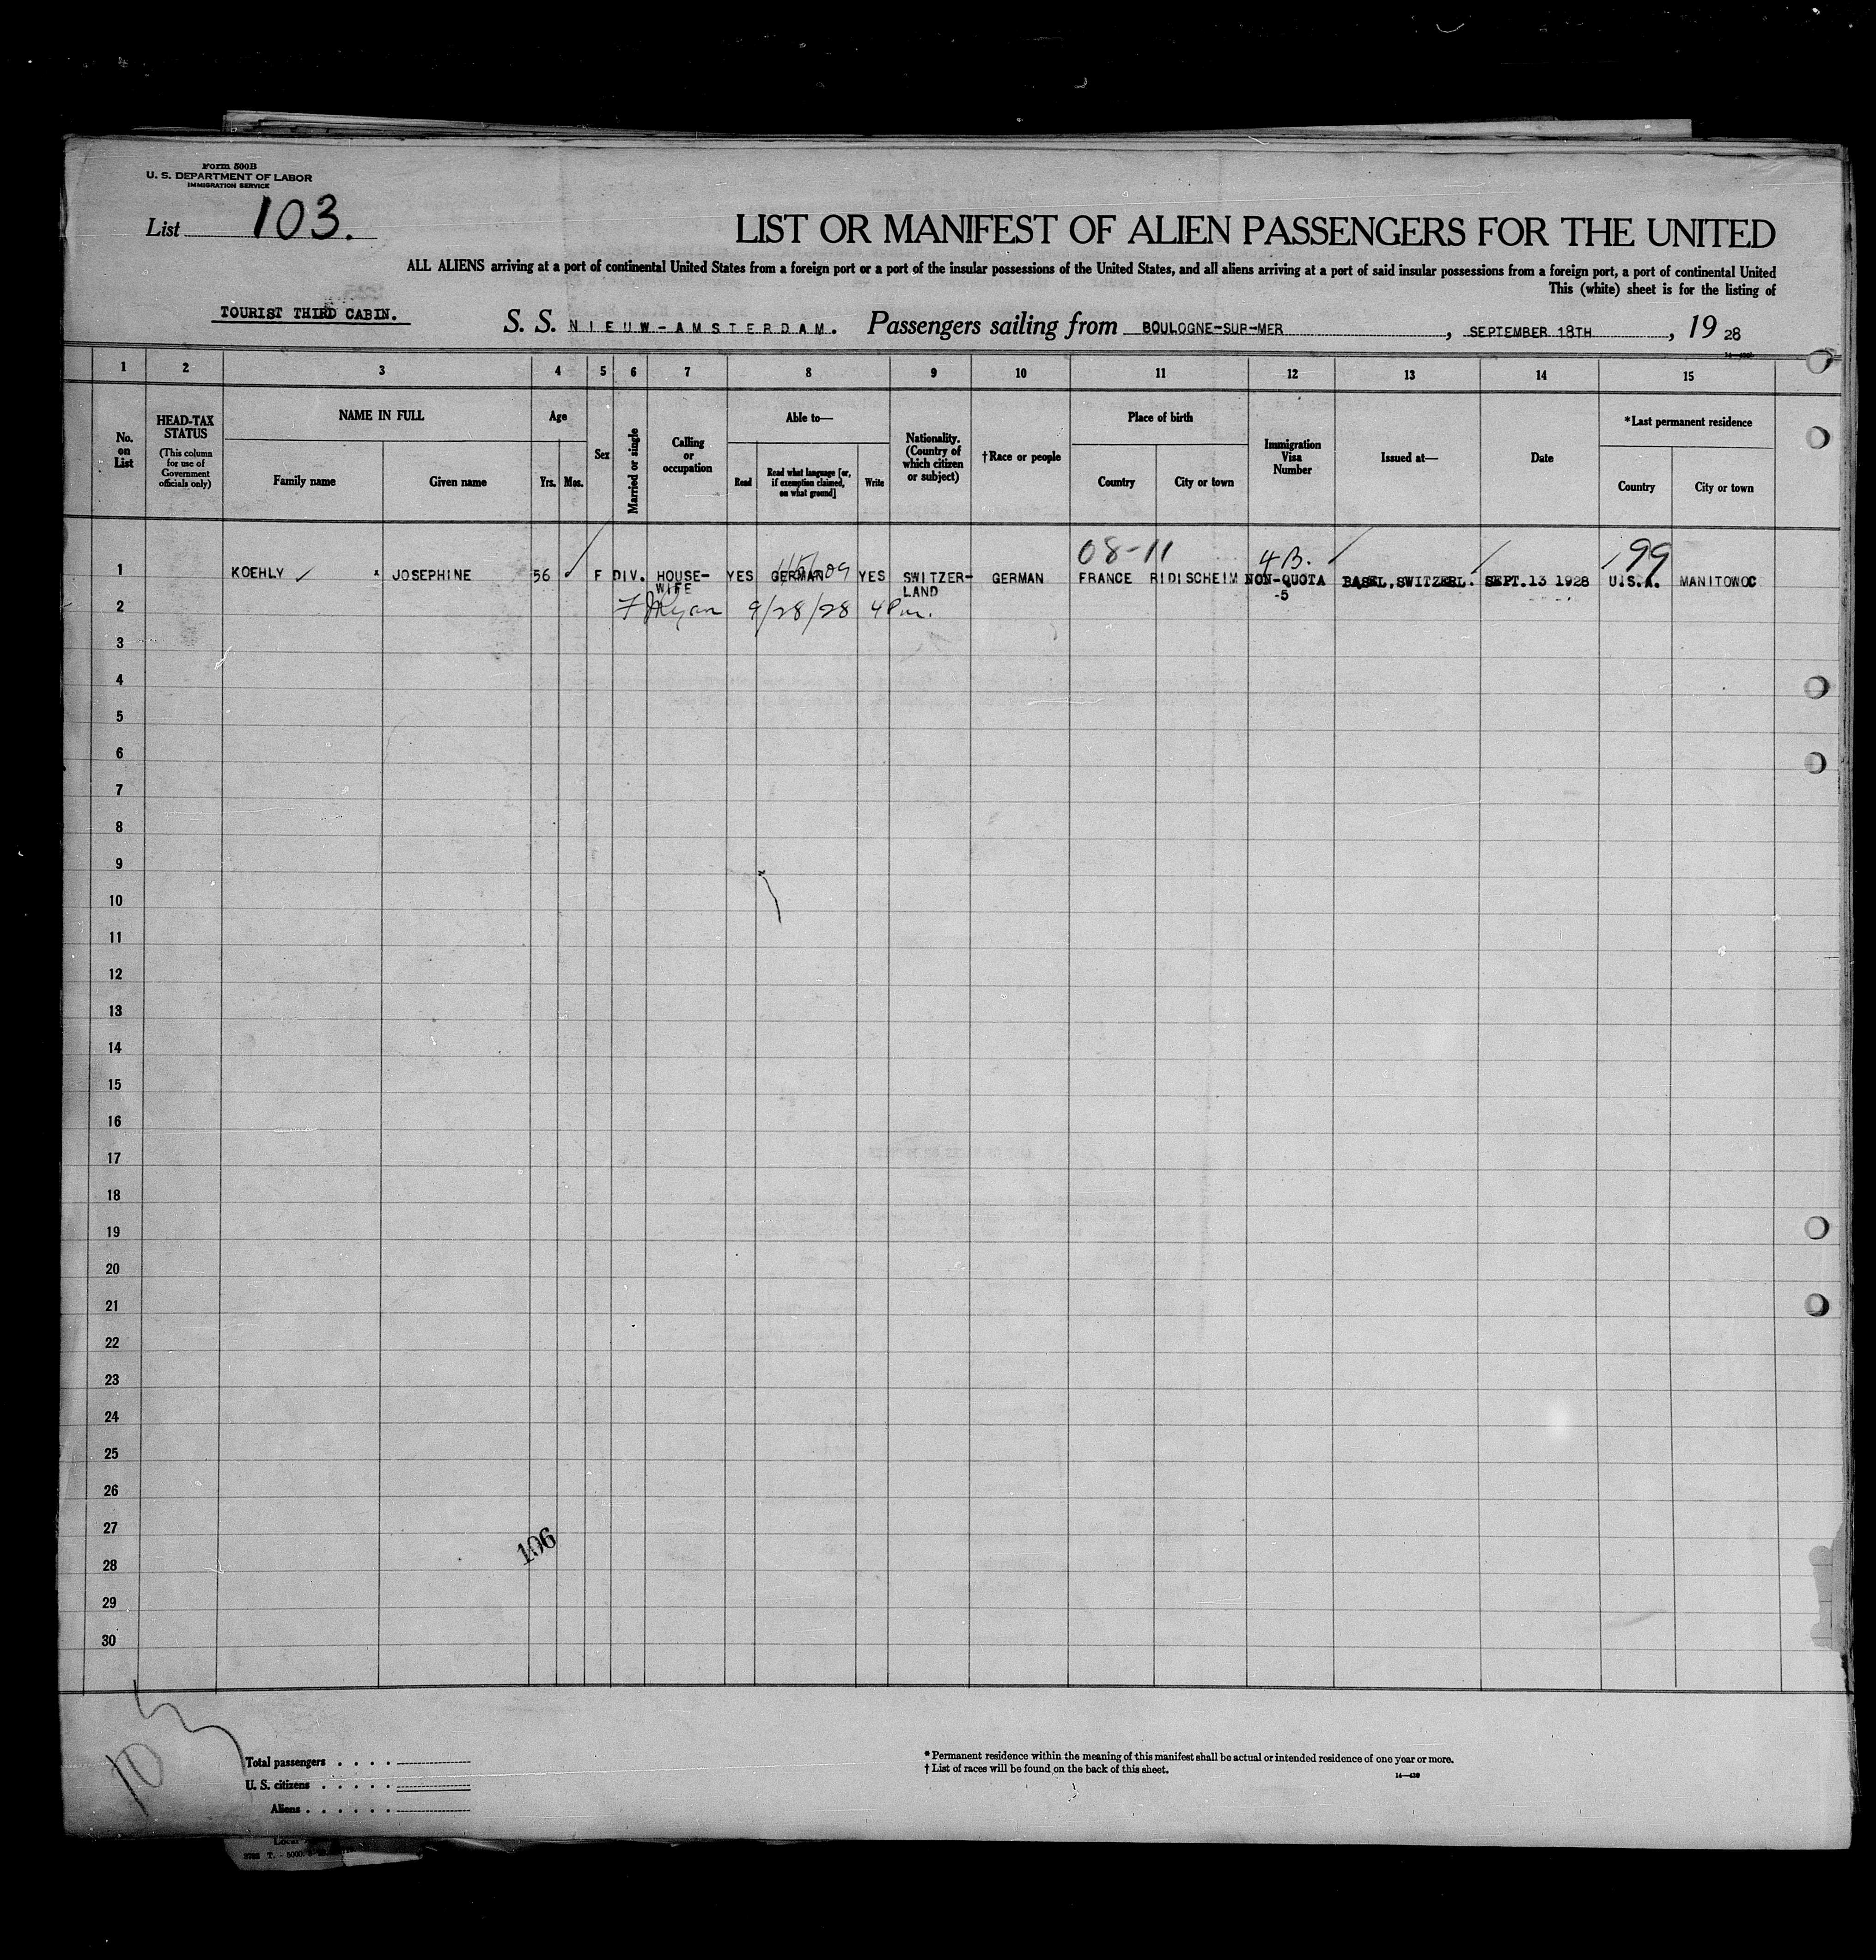 Form 500B
U. S. DEPARTMENT OF LABOR
IMMIGRATION SERVICE
List 103.
LIST OR MANIFEST OF ALIEN PASSENGERS FOR THE UNITED
ALL ALIENS arriving at a port of continental United States from a foreign port or a port of the insular possessions of the United States, and all aliens arriving at a port of said insular possessions from a foreign port, a port of continental United
This (white) sheet is for the listing of
TOURIST THIRD CABIN.
S. S. NIEUW-AMSTERDAM. Passengers sailing from BOULOGNE-SUR-MER, SEPTEMBER 18TH, 19 28
1 2 3 4 5 6 7 8 9 10 11 12 13 14 15
No. on List
HEAD-TAX STATUS
(This column for use of Government officials only)
NAME IN FULL
Family name
Given name
Age
Yrs. Mos.
Sex
Married or single
Calling or occupation
Able to—
Read
Read what language [or, if exemption claimed, on what ground]
Write
Nationality. (Country of which citizen or subject)
†Race or people
Place of birth
Country
City or town
Immigration Visa Number
Issued at—
Date
*Last permanent residence
Country
City or town
08-11 4B. 99
1 KOEHLY x JOSEPHINE 56 F DIV. HOUSE-WIFE YES GERMAN YES SWITZER-LAND GERMAN FRANCE RIDISCHEIM NON-QUOTA -5 BASEL, SWITZERL. SEPT.13 1928 U.S.A. MANITOWOC
2 9/28/28 4 Pm.
3
4
5
6
7
8
9
10
11
12
13
14
15
16
17
18
19
20
21
22
23
24
25
26
27
106
28
29
30
10
Total passengers
U. S. citizens
Aliens
* Permanent residence within the meaning of this manifest shall be actual or intended residence of one year or more.
† List of races will be found on the back of this sheet.